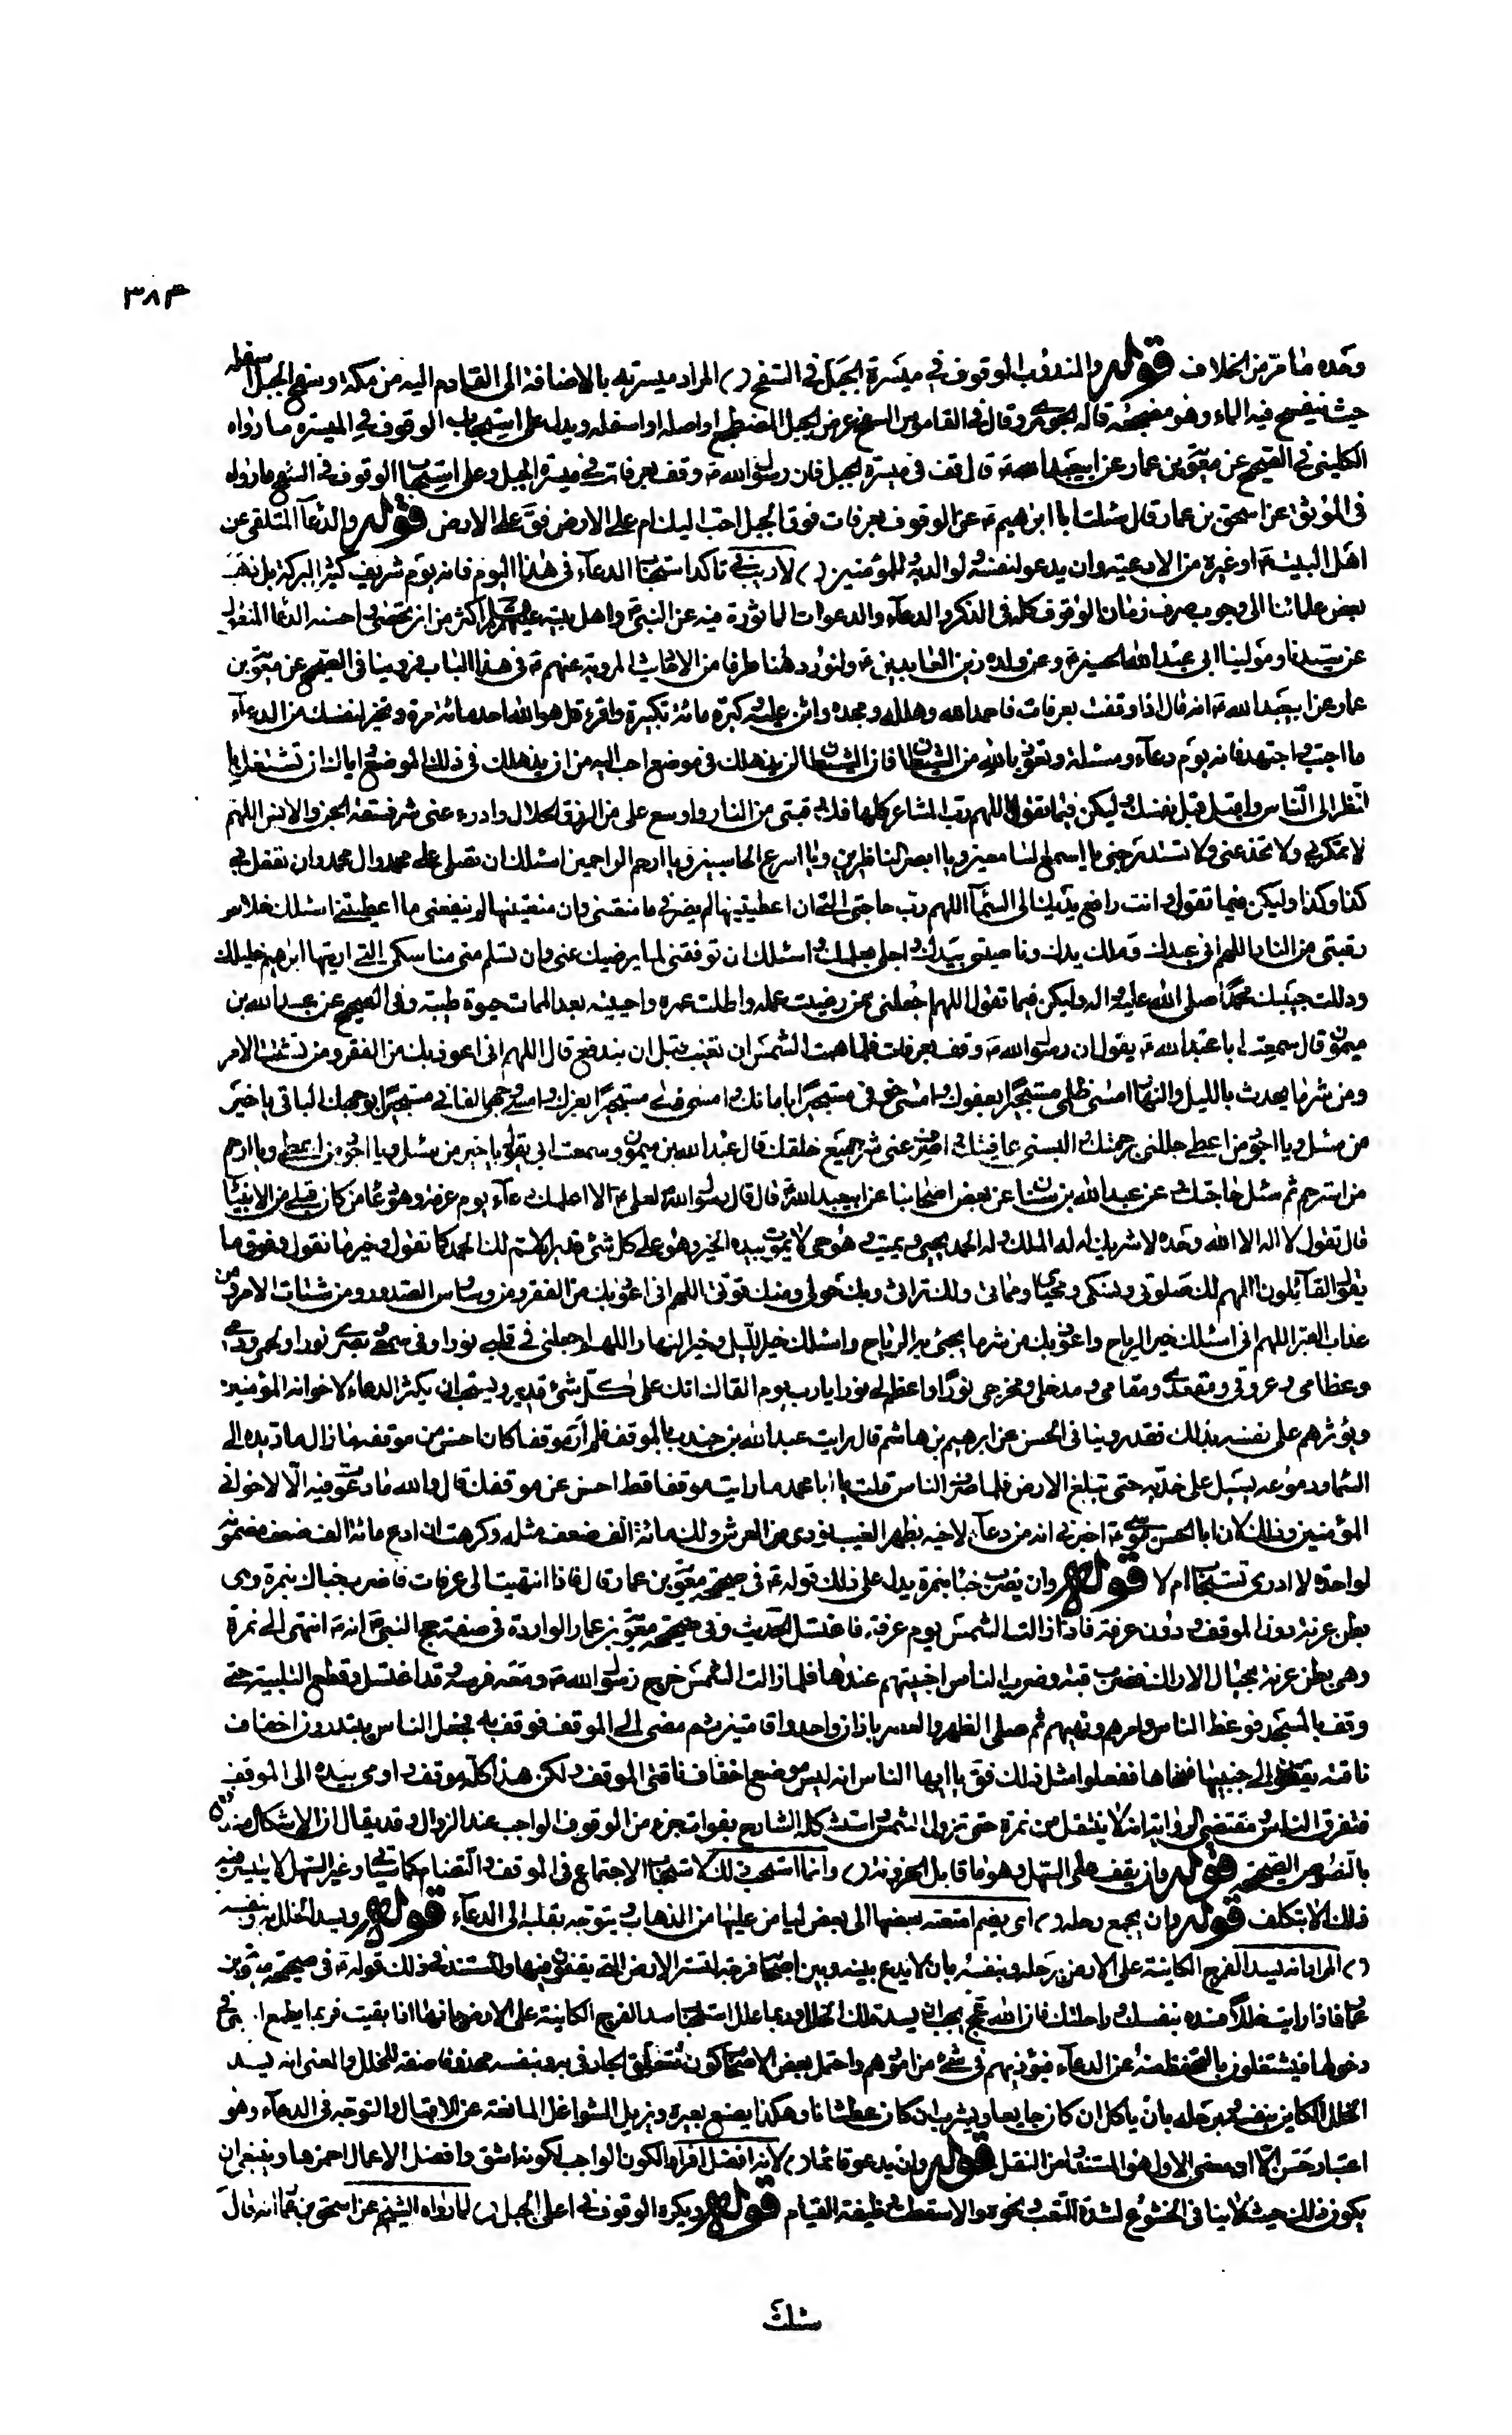 ٣٨٣
وحده ما مرّ من الخلاف قوله والمندوب الوقوف في ميسرة الجبل في السفح المراد ميسرته بالاضافة الى القادم اليه من مكة وسفح الجبل اسفله
حيث ينفسح فيه الماء وهو مضجعه قاله الجوهري وقال في القاموس السفح عرض الجبل المضطجع او اصله او اسفله ويدل على استحباب الوقوف في الميسرة ما رواه
الكليني في الصحيح عن معوية بن عمار عن ابيعبد الله ع قال قف في ميسرة الجبل فان رسول الله ص وقف بعرفات في ميسرة الجبل وعلى استحباب الوقوف في السفح ما رواه
في الموثق عن اسحق بن عمار قال سئلت ابا ابرهيم ع عن الوقوف بعرفات فوق الجبل احب اليك ام على الارض فق على الارض قوله والدعآء المتلقى عن
اهل البيت ع او غيره من الادعية وان يدعو لنفسه لوالديه للمؤمنين لا ريب في تاكد استحباب الدعآء في هذا اليوم فانه يوم شريف كثير البركة بل ذهب
بعض علمائنا الى وجوب صرف زمان الوقوف كله في الذكر والدعآء والدعوات الماثورة فيه عن النبي ص واهل بيته عليهم السلام اكثر من ان تحصى احسنه الدعاء المنقول
عن سيدنا ومولينا ابي عبد الله الحسين ع وعن ولده زين العابدين ع ولنورد هنا طرفا من الاخبار المروية عنهم ع في هذا الباب فروينا في الصحيح عن معوية بن
عمار عن ابيعبد الله ع انه قال اذا وقفت بعرفات فاحمد الله وهلله ومجده واثن عليه كبره مائة تكبيرة واقرء قل هو الله احد مائة مرة وتخير لنفسك من الدعآء
ما احببت واجتهد فانه يوم دعآء ومسئلة وتعوذ بالله من الشيطان فان الشيطان لن يذهلك في موضع احب اليه من ان يذهلك في ذلك الموضع اياك ان تشتغل با
لنظر الى الناس واقبل قبل نفسك وليكن فيما تقول اللهم رب المشاعر كلها فك رقبتي من النار واوسع على من الرزق الحلال وادرء عني شر فسقة الجن والانس اللهم
لا تمكر بي ولا تخدعني ولا تستدرجني يا اسمع السامعين ويا ابصر الناظرين ويا اسرع الحاسبين ويا ارحم الراحمين اسئلك ان تصلي على محمد وال محمد وان تفعل بي
كذا وكذا وليكن فيما تقول وانت رافع يديك الى السمآء اللهم رب حاجتي التي ان اعطيتنيها لم يضرني ما منعتني وان منعتنيها لم ينفعني ما اعطيتني اسئلك خلاص
رقبتي من النار اللهم اني عبدك وملك يدك وناصيتي بيدك واجلي بعلمك اسئلك ان توفقني لما يرضيك عني وان تسلم مني مناسكي التي اريتها ابرهيم خليلك
ودللت حبيبك محمدا صلى الله عليه واله وليكن فيما تقول اللهم اجعلني ممن رضيت عمله واطلت عمره واحييته بعد الممات حيوة طيبة وفي الصحيح عن عبد الله بن
ميمون قال سمعت ابا عبد الله ع يقول ان رسول الله ص وقف بعرفات فلما همت الشمس ان تغيب قبل ان يندفع قال اللهم اني اعوذ بك من الفقر ومن تشتت الامر
ومن شر ما يحدث بالليل والنهار امسى ظلمي مستجيرا بعفوك وامسى خوفي مستجيرا بامانك وامسى ذلي مستجيرا بعزك وامسى وجهي الفاني مستجيرا بوجهك الباقي يا خير
من سئل ويا اجود من اعطى جللني برحمتك والبسني عافيتك اصرف عني شر جميع خلقك قال عبد الله بن ميمون وسمعت ابي يقول يا خير من سئل ويا اجود من اعطى ويا ارحم
من استرحم ثم سئل حاجتك وعن عبد الله بن سنان عن بعض اصحابنا عن ابيعبد الله ع قال قال رسول الله ص لعلي ع الا اعلمك دعآء يوم عرفة وهو دعآء من كان قبلي من الانبياء
قال تقول لا اله الا الله وحده لا شريك له له الملك وله الحمد يحيي ويميت وهو حي لا يموت بيده الخير وهو على كل شئ قدير اللهم لك الحمد كما تقول وخير ما نقول وفوق ما
يقول القائلون اللهم لك صلوتي ونسكي ومحياي ومماتي ولك تراثي وبك حولي ومنك قوتي اللهم اني اعوذ بك من الفقر ومن وسواس الصدور ومن شتات الامر ومن
عذاب القبر اللهم اني اسئلك خير الرياح واعوذ بك من شر ما يجئ به الرياح واسئلك خير الليل وخير النهار اللهم اجعلني في قلبي نورا وفي سمعي وبصري نورا ولحمي ودمي
وعظامي وعروقي ومقعدي ومقامي ومدخلي ومخرجي نورا واعظم لي نورا يا رب يوم القاك انك على كل شئ قدير ويستحب ان يكثر الدعاء لاخوانه المؤمنين
ويؤثرهم على نفسه بذلك فقد روينا في الحسن عن ابرهيم بن هاشم قال رايت عبد الله بن جندب بالموقف فلم ار موقفا كان احسن من موقفه ما زال مادا يده الى
السماء ودموعه يسيل على خديه حتى تبلغ الارض فلما صرف الناس قلت يا ابا محمد ما رايت موقفا قط احسن من موقفك قال والله ما دعوت فيه الا لاخواني
المؤمنين وذلك لان ابا الحسن موسى ع اخبرني انه من دعا لاخيه بظهر الغيب نودى من العرش ولك مائة الف ضعف مثله وكرهت ان ادع مائة الف ضعف مضمونة
لواحدة لا ادرى تستجاب ام لا قوله وان يضرب خباه بنمرة يدل على ذلك قوله ع في صحيحة معوية بن عمار قال فاذا انتهيت الى عرفات فاضرب خباك بنمرة وهى
بطن عرنة دون الموقف ودون عرفة فاذا زالت الشمس يوم عرفة فاغتسل الحديث وفي صحيحة معوية بن عمار الواردة في صفة حج النبي ص انه ع انتهى الى نمرة
وهي بطن عرنة بحيال الاراك فضرب قبته وضرب الناس اخبيتهم عندها فلما زالت الشمس خرج رسول الله ص ومعه فرسه وقد اغتسل وقطع التلبية حتى
وقف بالمسجد فوعظ الناس وامرهم ونهيهم ثم صلى الظهر والعصر باذان واحد واقامتين ثم مضى الى الموقف فوقف به فجعل الناس يبتدرون اخفاف
ناقته يقفون الى جنبها فنحاها ففعلوا مثل ذلك فق يا ايها الناس انه ليس موضع اخفاف ناقتي الموقف ولكن هذا كله موقف واومى بيده الى الموقف
فتفرق الناس ومقتضى الرواية انه لا ينتقل من نمرة حتى تزول الشمس واستشكله الشارح بفوات جزء من الوقوف الواجب عند الزوال وقد يقال ان الاشكال مندفع
بالنصوص الصحيحة قوله وان يقف على السهل وهو ما قابل الحزونة وانما استحب ذلك لاستحباب الاجتماع في الموقف والتضام كما سياتي وغير السهل لا يتيسر فيه
ذلك الا بتكلف قوله وان يجمع رحله اى يضم امتعته بعضها الى بعض ليامن عليها من الذهاب ويتوجه بقلبه الى الدعآء قوله ويسد الخلل به وبنفسه
المراد انه يسد الفرج الكاينة على الارض برحله وبنفسه بان لا يدع بينه وبين اصحابه فرجة لتستر الارض التي يقفون فيها والمستند في ذلك قوله ع في صحيحة معوية بن
عمار فاذا رايت خللا فسده بنفسك وراحلتك فان الله عز وجل يحب ان يسد تلك الخلل وربما علل استحباب سد الفرج الكاينة على الارض بانها اذا بقيت فربما يطمع اجنبي في
دخولها فيشتغلون بالتحفظ منه عن الدعآء فيؤذيهم في شئ من امورهم واحتمل بعض الاصحاب كون متعلق الجار في به وبنفسه محذوفا صفة للخلل والمعنى انه يسد
الخلل الكاين بنفسه وبرحله بان ياكل ان كان جايعا ويشرب ان كان عطشانا وهكذا يصنع ببعيره ويزيل الشواغل المانعة عن الاقبال والتوجه في الدعآء وهو
اعتبار حسن الا ان معنى الاول هو المستفاد من النقل قوله وان يدعو قائما لانه افضل افراد الكون الواجب لكونه اشق وافضل الاعمال احمزها وينبغي ان
يكون ذلك حيث لا ينافي الخشوع لشدة التعب ونحوه والا سقطت وظيفة القيام قوله ويكره الوقوف في اعلى الجبل لما رواه الشيخ عن اسحق بن عمار انه قال
سئلت